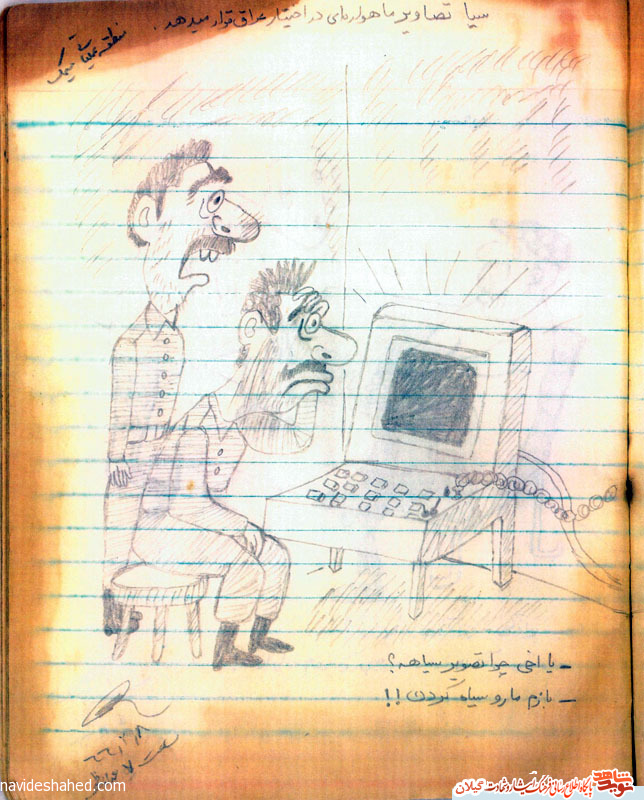 سیا تصاویر ماهواره‌ای در اختیار عراق قرار میدهد.
منطقه عملیاتی میمک
- یا اخی چرا تصویر سیاهه؟
- بازم ما رو سیاه کردن !!
ساعت ۷
navideshahed.com
نوید شاهد
پایگاه اطلاع رسانی فرهنگ ایثار و شهادت گیلان